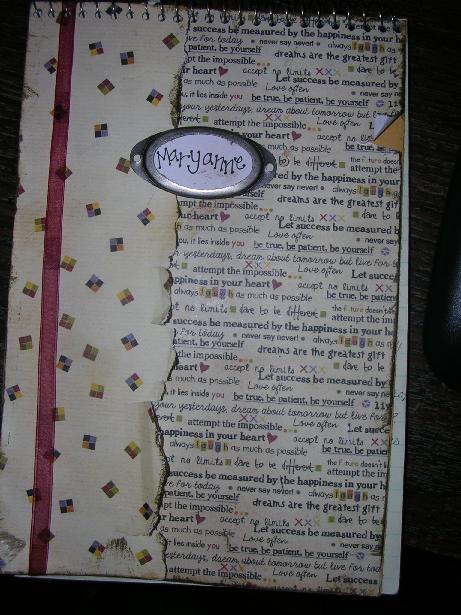 Maryanne
success be measured by the happiness in your h
live for today • never say never! • always laugh as
patient, be yourself dreams are the greatest gift
the impossible
ur heart accept no limits xxx dare to be
much as possible Let success be measured by
Love often never say ne
it lies inside you be true, be patient, be yourself
your yesterdays, dream about tomorrow but
attempt the impossible Love often
our heart
much as possible be true, be
to be different the future doesn
be measured by the happiness in your
never say never! always laugh
dreams are the greatest
ur heart accept no limits xxx dare to
as much as possible Let success be measured
Love often never say
you, it lies inside you be true, be patient, be yourself
yesterdays, dream about tomorrow but live for to
attempt the impossible Love often Let succe
appiness in your heart accept no limits xxx
always laugh as much as possible be true, be patien
pt no limits dare to be different the future doesn't
attempt the im
success be measured by the happiness in your h
live for today • never say never! • always laugh as
patient, be yourself dreams are the greatest gift
the impossible
heart accept no limits xxx dare to be
much as possible Let success be measured by
Love often never say
it lies inside you be true, be patient, be yourself 11
your yesterdays, dream about tomorrow but live For
attempt the impossible Love often Let succe
appiness in your heart accept no limits xx
always laugh as much as possible be true, be patien
pt no limits dare to be different the future doesn't
attempt the imp
success be measured by the happiness in your h
For today • never say never! • always laugh as
patient, be yourself dreams are the greatest gift
the impossible
r heart accept no limits xxx dare to be
much as possible Let success be measured by
Love often never say ne
it lies inside you be true, be patient, be yourself
yesterdays, dream about tomorrow but live For to
attempt the impossible Love often Let success